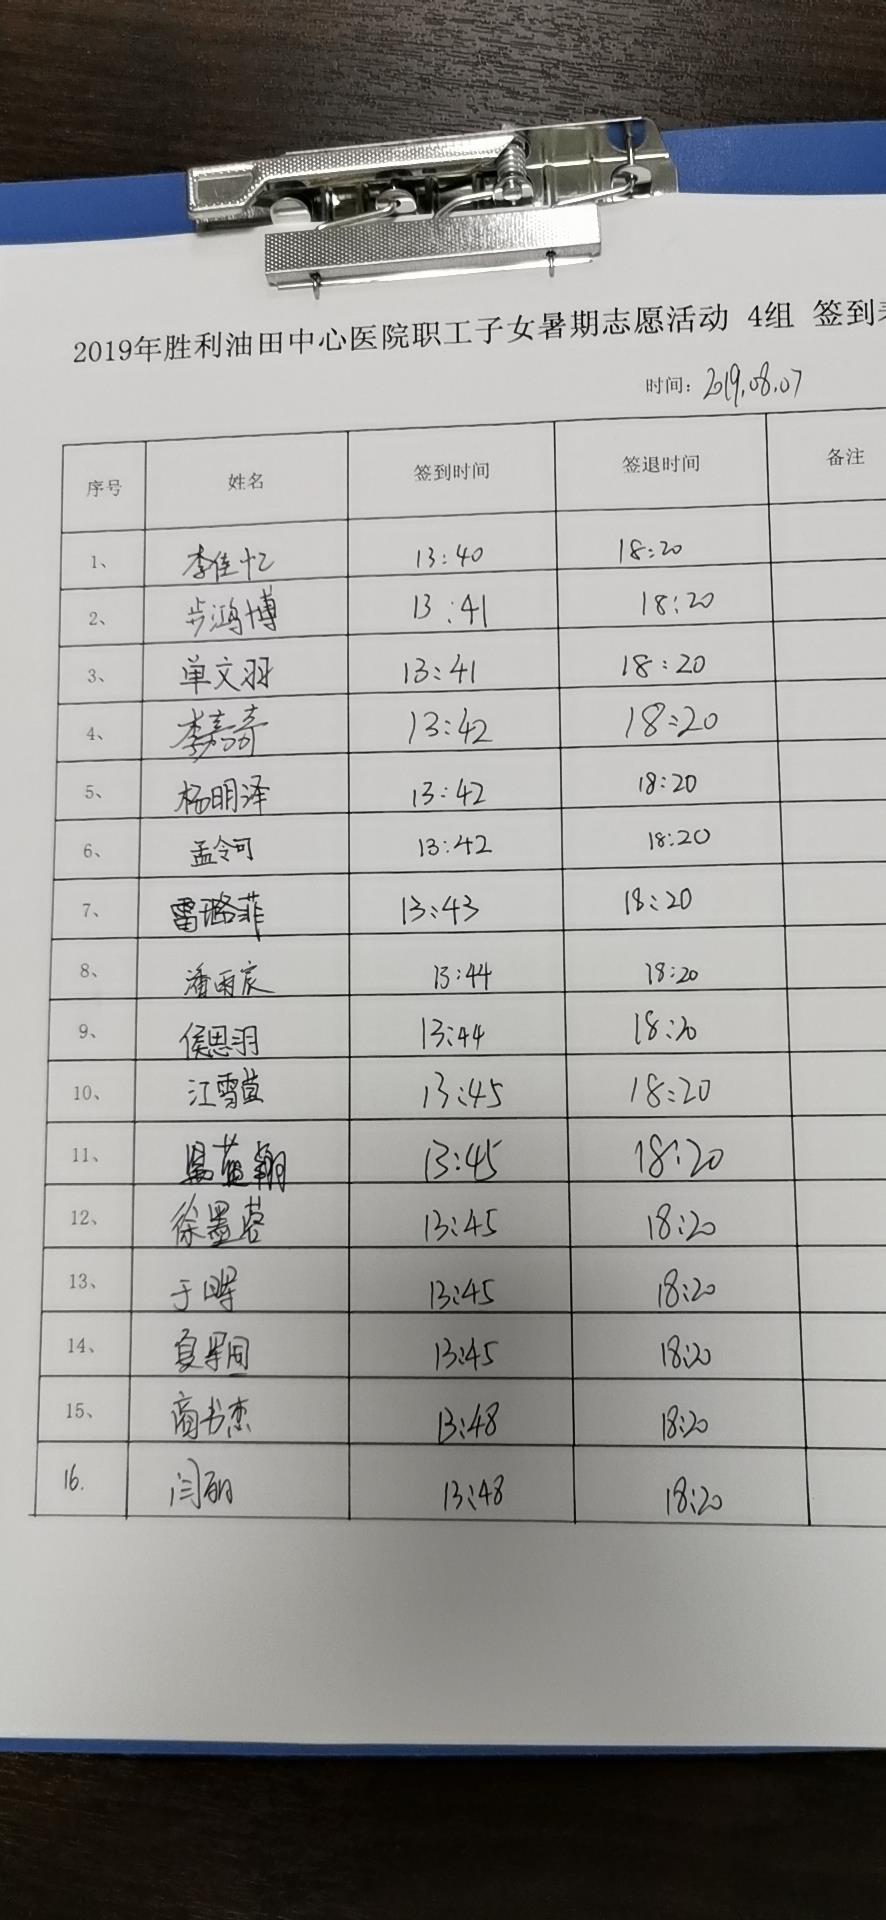 2019年胜利油田中心医院职工子女暑期志愿活动 4组 签到表
时间：2019.08.07
序号 姓名 签到时间 签退时间 备注
1、 李佳忆 13:40 18:20
2、 步鸿博 13:41 18:20
3、 单文羽 13:41 18:20
4、 李嘉奇 13:42 18:20
5、 杨明泽 13:42 18:20
6、 孟令可 13:42 18:20
7、 雷璐菲 13:43 18:20
8、 潘雨宸 13:44 18:20
9、 侯思羽 13:44 18:20
10、 江雪萱 13:45 18:20
11、 13:45 18:20
12、 徐墨蓉 13:45 18:20
13、 于晖 13:45 18:20
14、 13:45 18:20
15、 商书杰 13:48 18:20
16. 闫丽 13:48 18:20